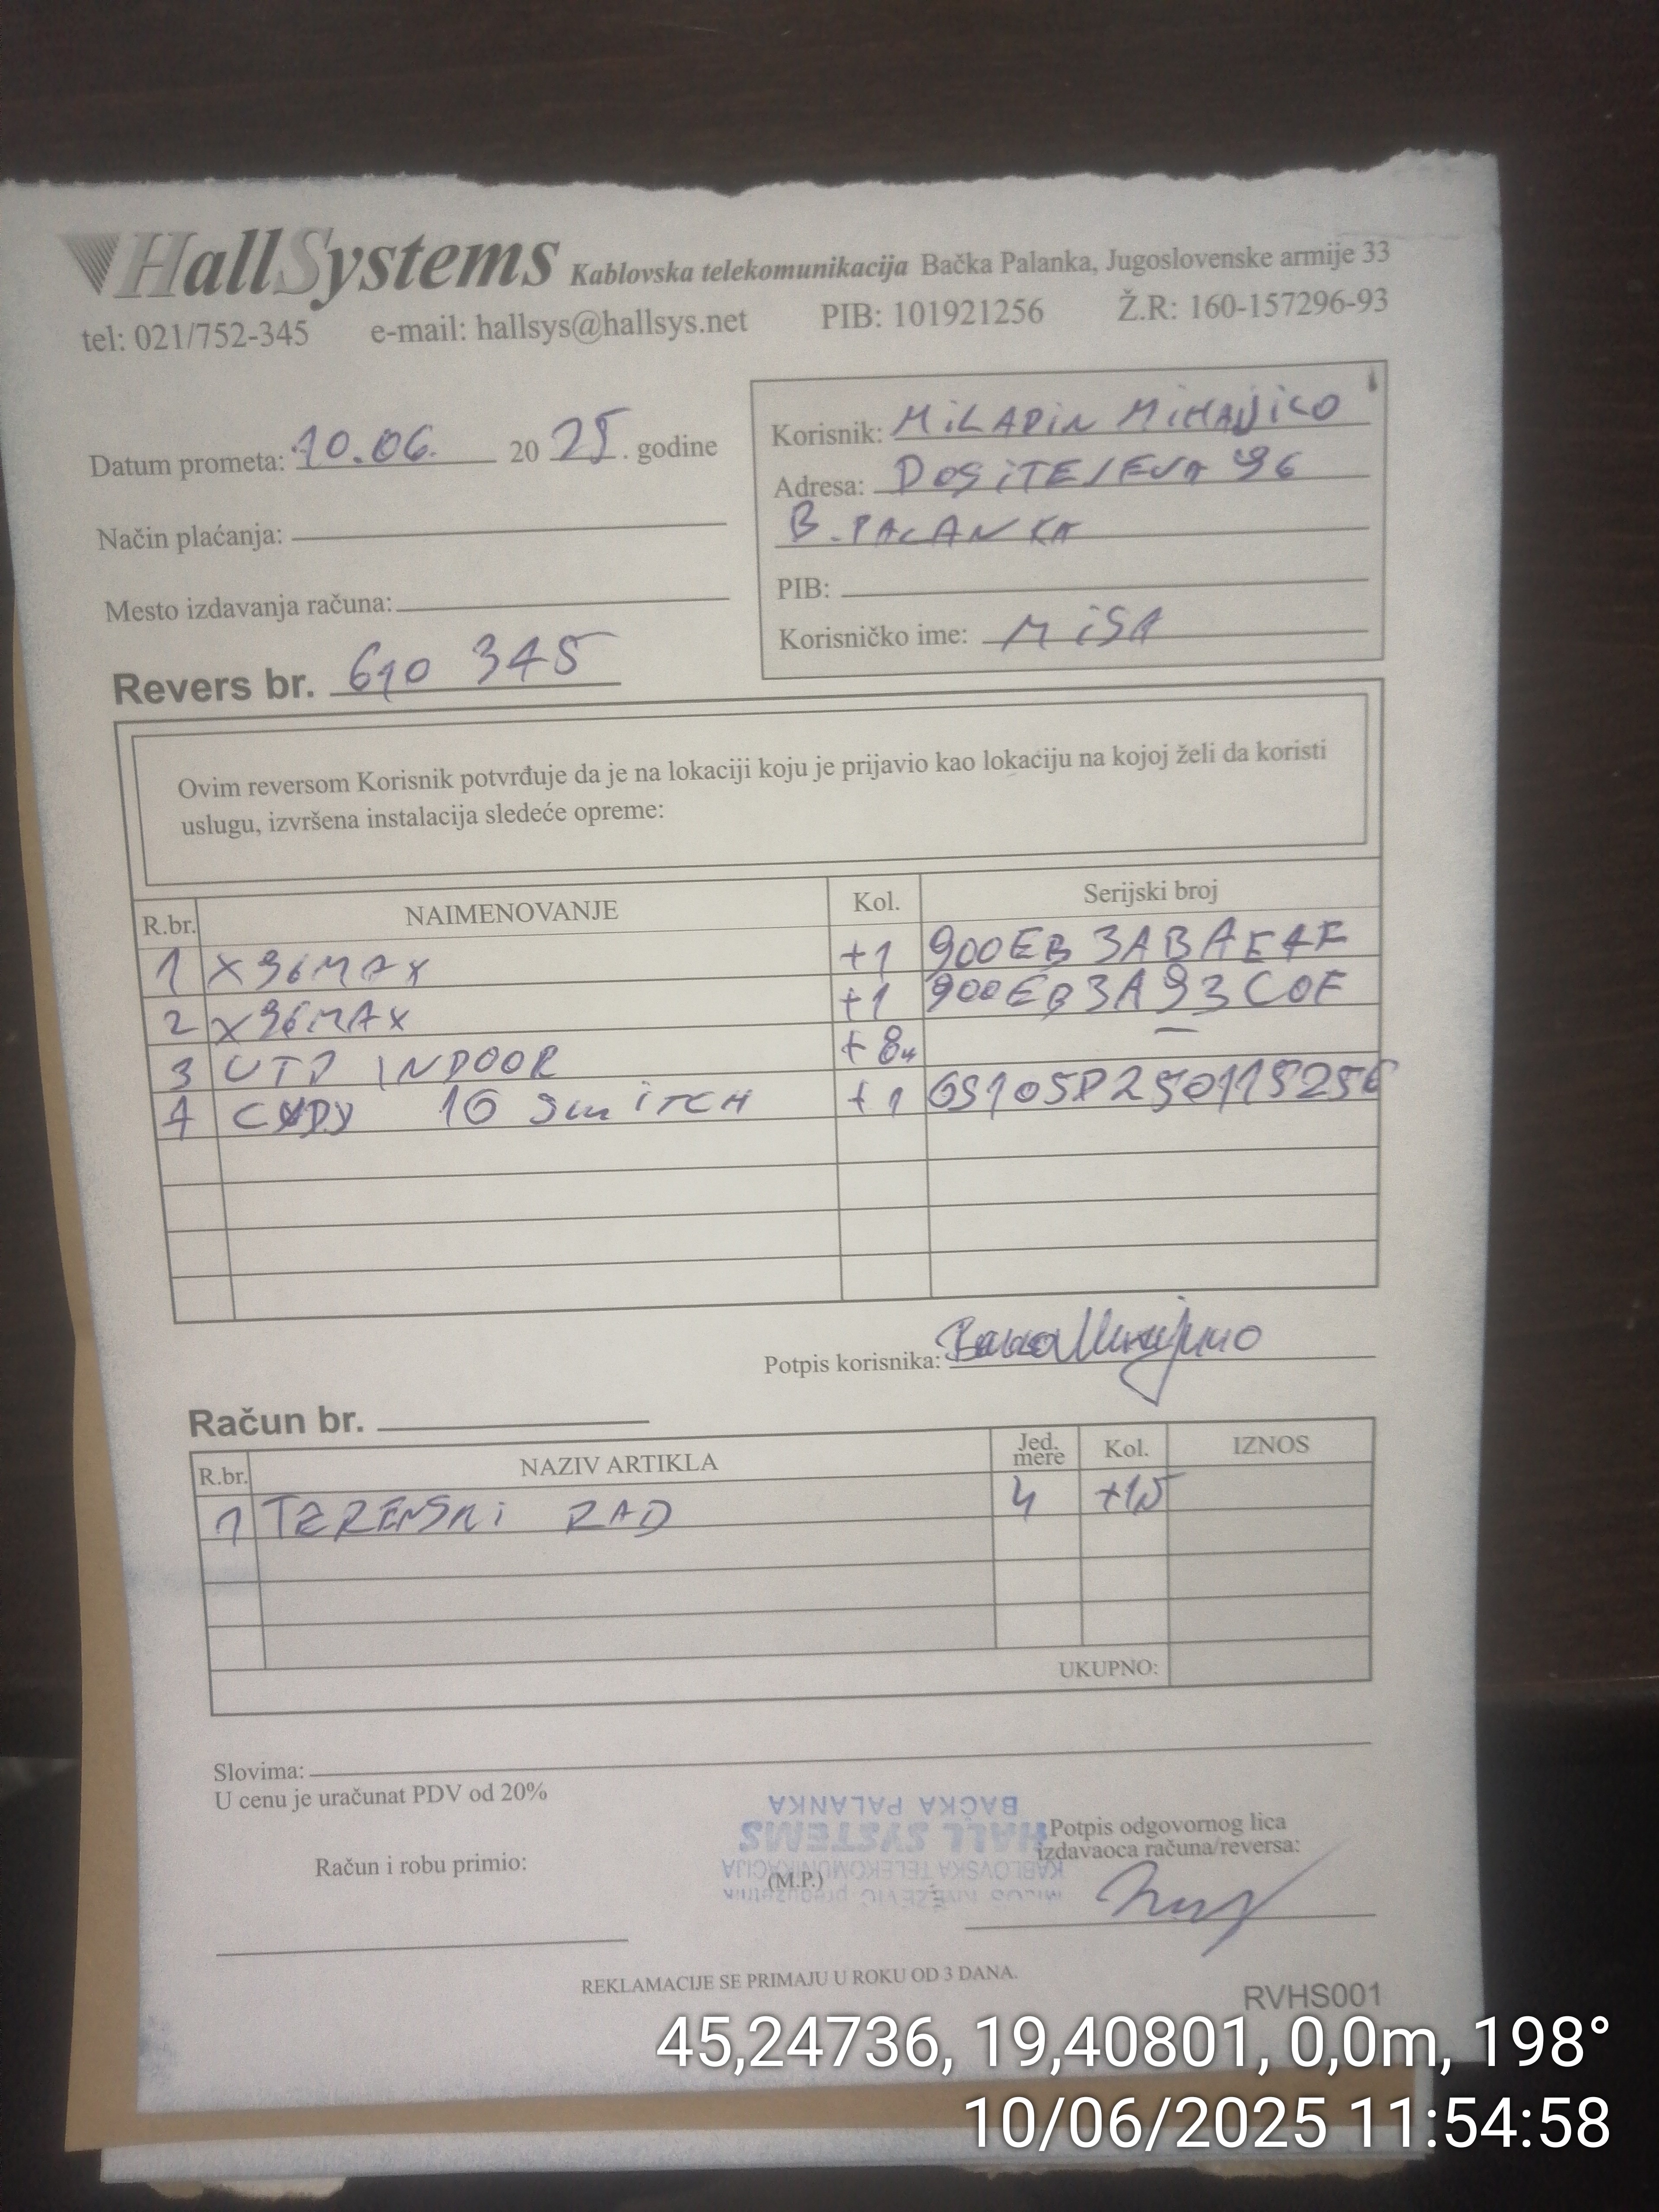 HallSystems Kablovska telekomunikacija Bačka Palanka, Jugoslovenske armije 33
tel: 021/752-345 e-mail: hallsys@hallsys.net PIB: 101921256 Ž.R: 160-157296-93
Datum prometa: 10.06. 2025. godine
Način plaćanja:
Mesto izdavanja računa:
Revers br. 610 345
Korisnik: MiLADiN
Adresa: DOSiTEJEVA 96
B. PALANKA
PIB:
Korisničko ime: MiSA
Ovim reversom Korisnik potvrđuje da je na lokaciji koju je prijavio kao lokaciju na kojoj želi da koristi
uslugu, izvršena instalacija sledeće opreme:
R.br. NAIMENOVANJE Kol. Serijski broj
1 X96MAX +1 900EB3ABAE4F
2 X96MAX +1 900EB3A93C0E
3 UTP INDOOR +8m –
4 CUDY 1G SwiTCH +1 GS105P250115256
Potpis korisnika:
Račun br.
R.br. NAZIV ARTIKLA Jed. mere Kol. IZNOS
1 TERENSKi RAD h
UKUPNO:
Slovima:
U cenu je uračunat PDV od 20%
Račun i robu primio:
(M.P.)
BAČKA PALANKA
HALL SYSTEMS
KABLOVSKA TELEKOMUNIKACIJA
Potpis odgovornog lica
izdavaoca računa/reversa:
REKLAMACIJE SE PRIMAJU U ROKU OD 3 DANA.
RVHS001
45,24736, 19,40801, 0,0m, 198°
10/06/2025 11:54:58